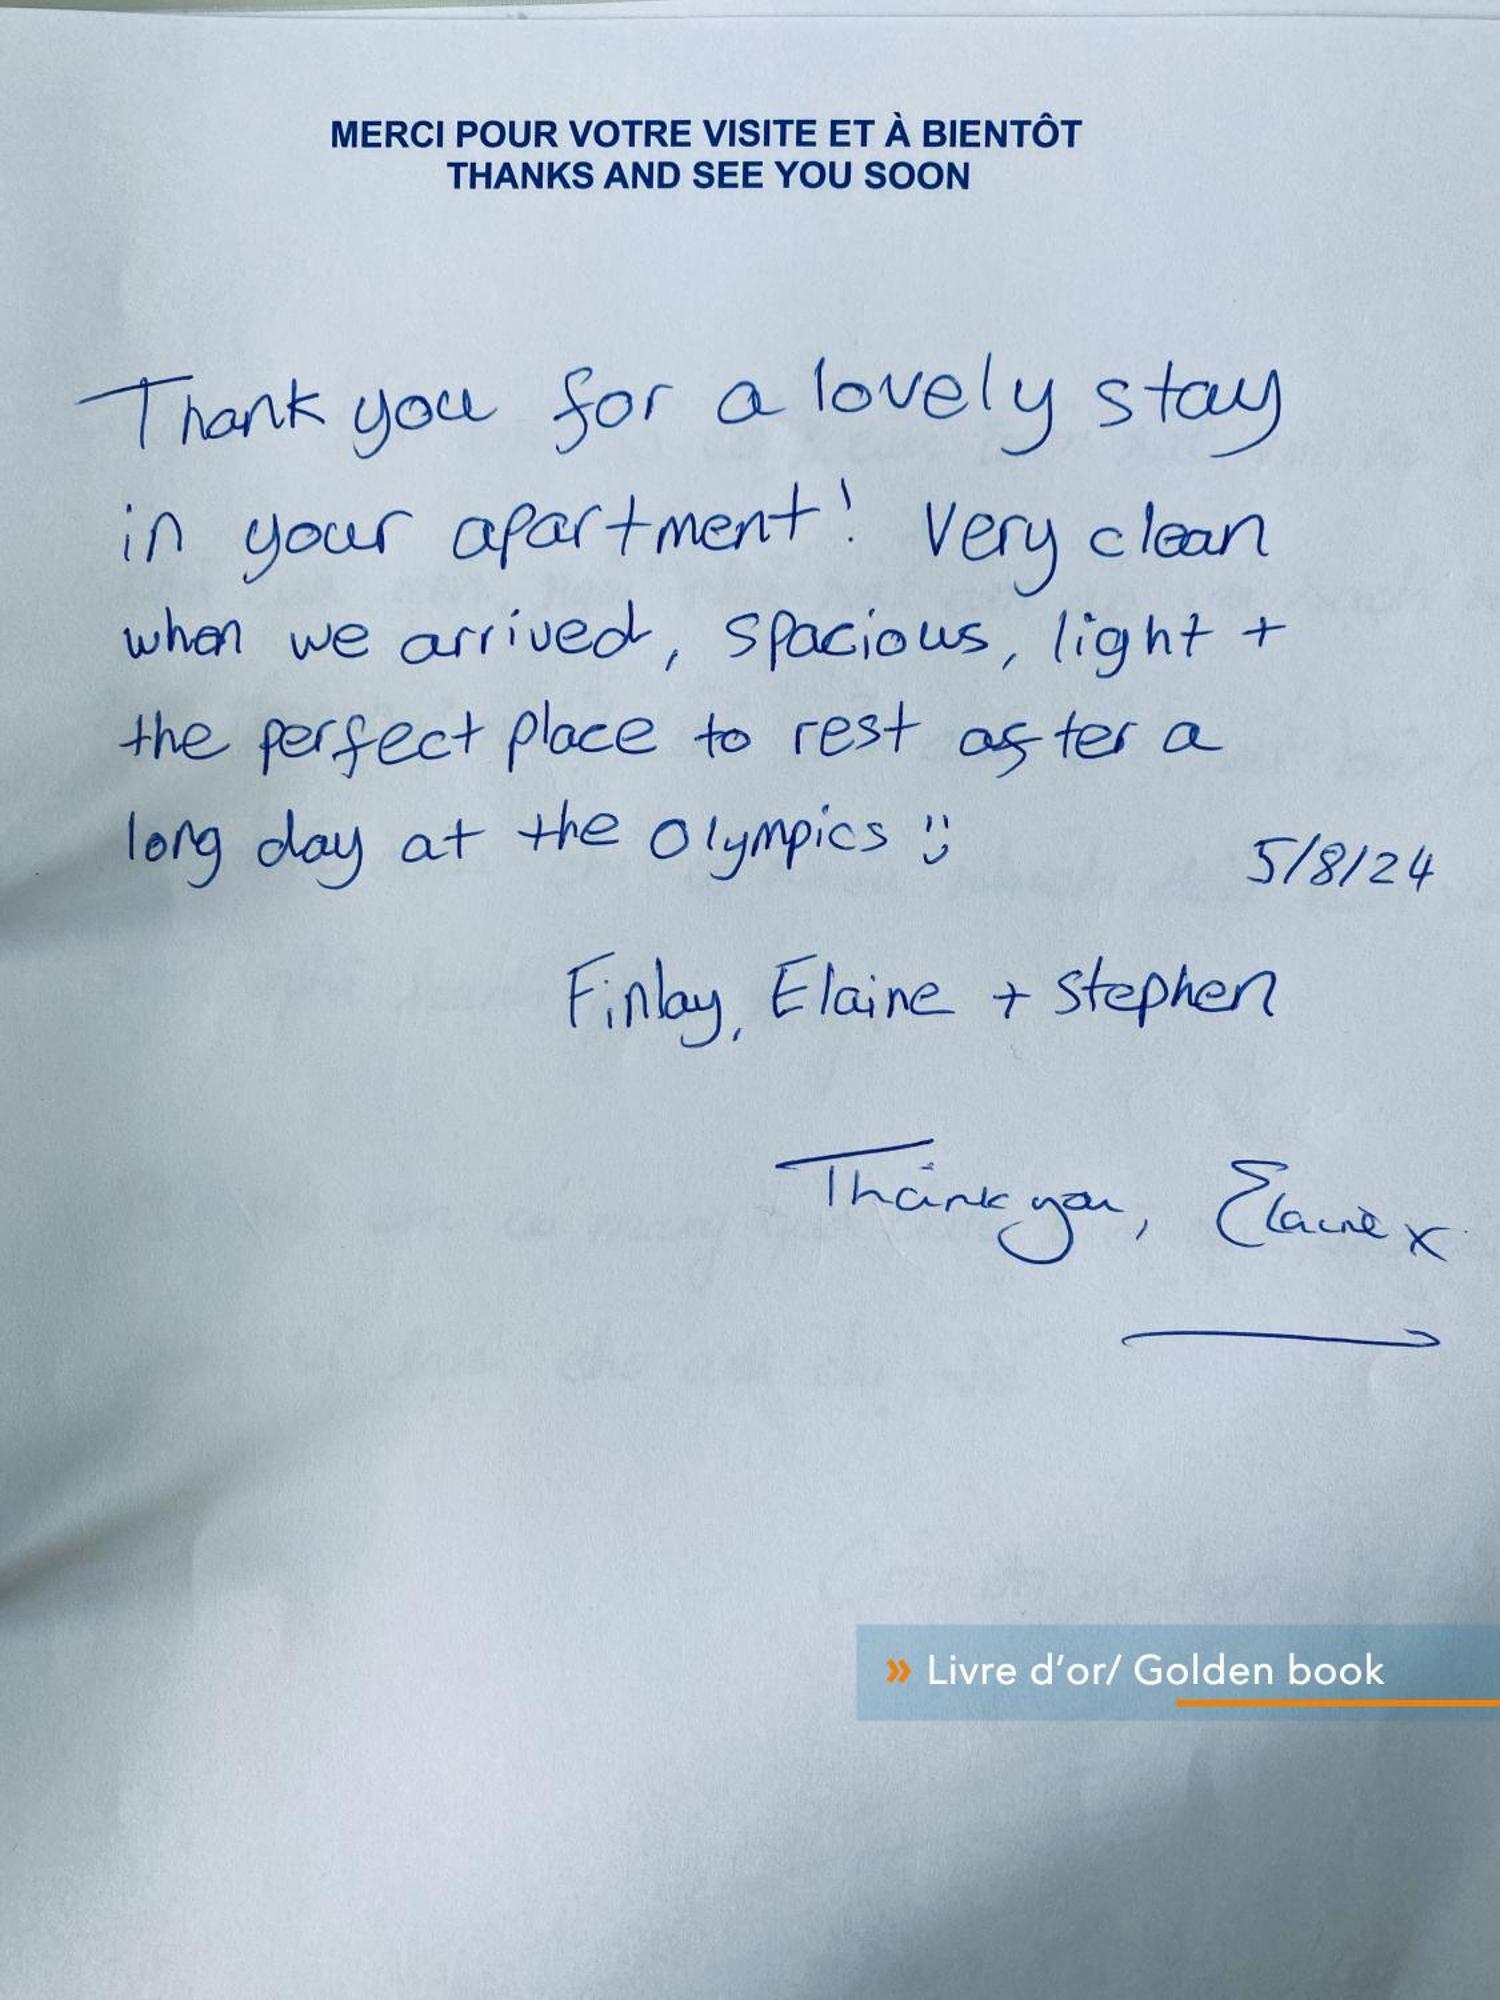 MERCI POUR VOTRE VISITE ET À BIENTÔT
THANKS AND SEE YOU SOON
Thank you for a lovely stay
in your apartment! Very clean
when we arrived, spacious, light +
the perfect place to rest after a
long day at the Olympics :)
5/8/24
Finlay, Elaine + Stephen
Thank you, Elaine x
» Livre d'or/ Golden book